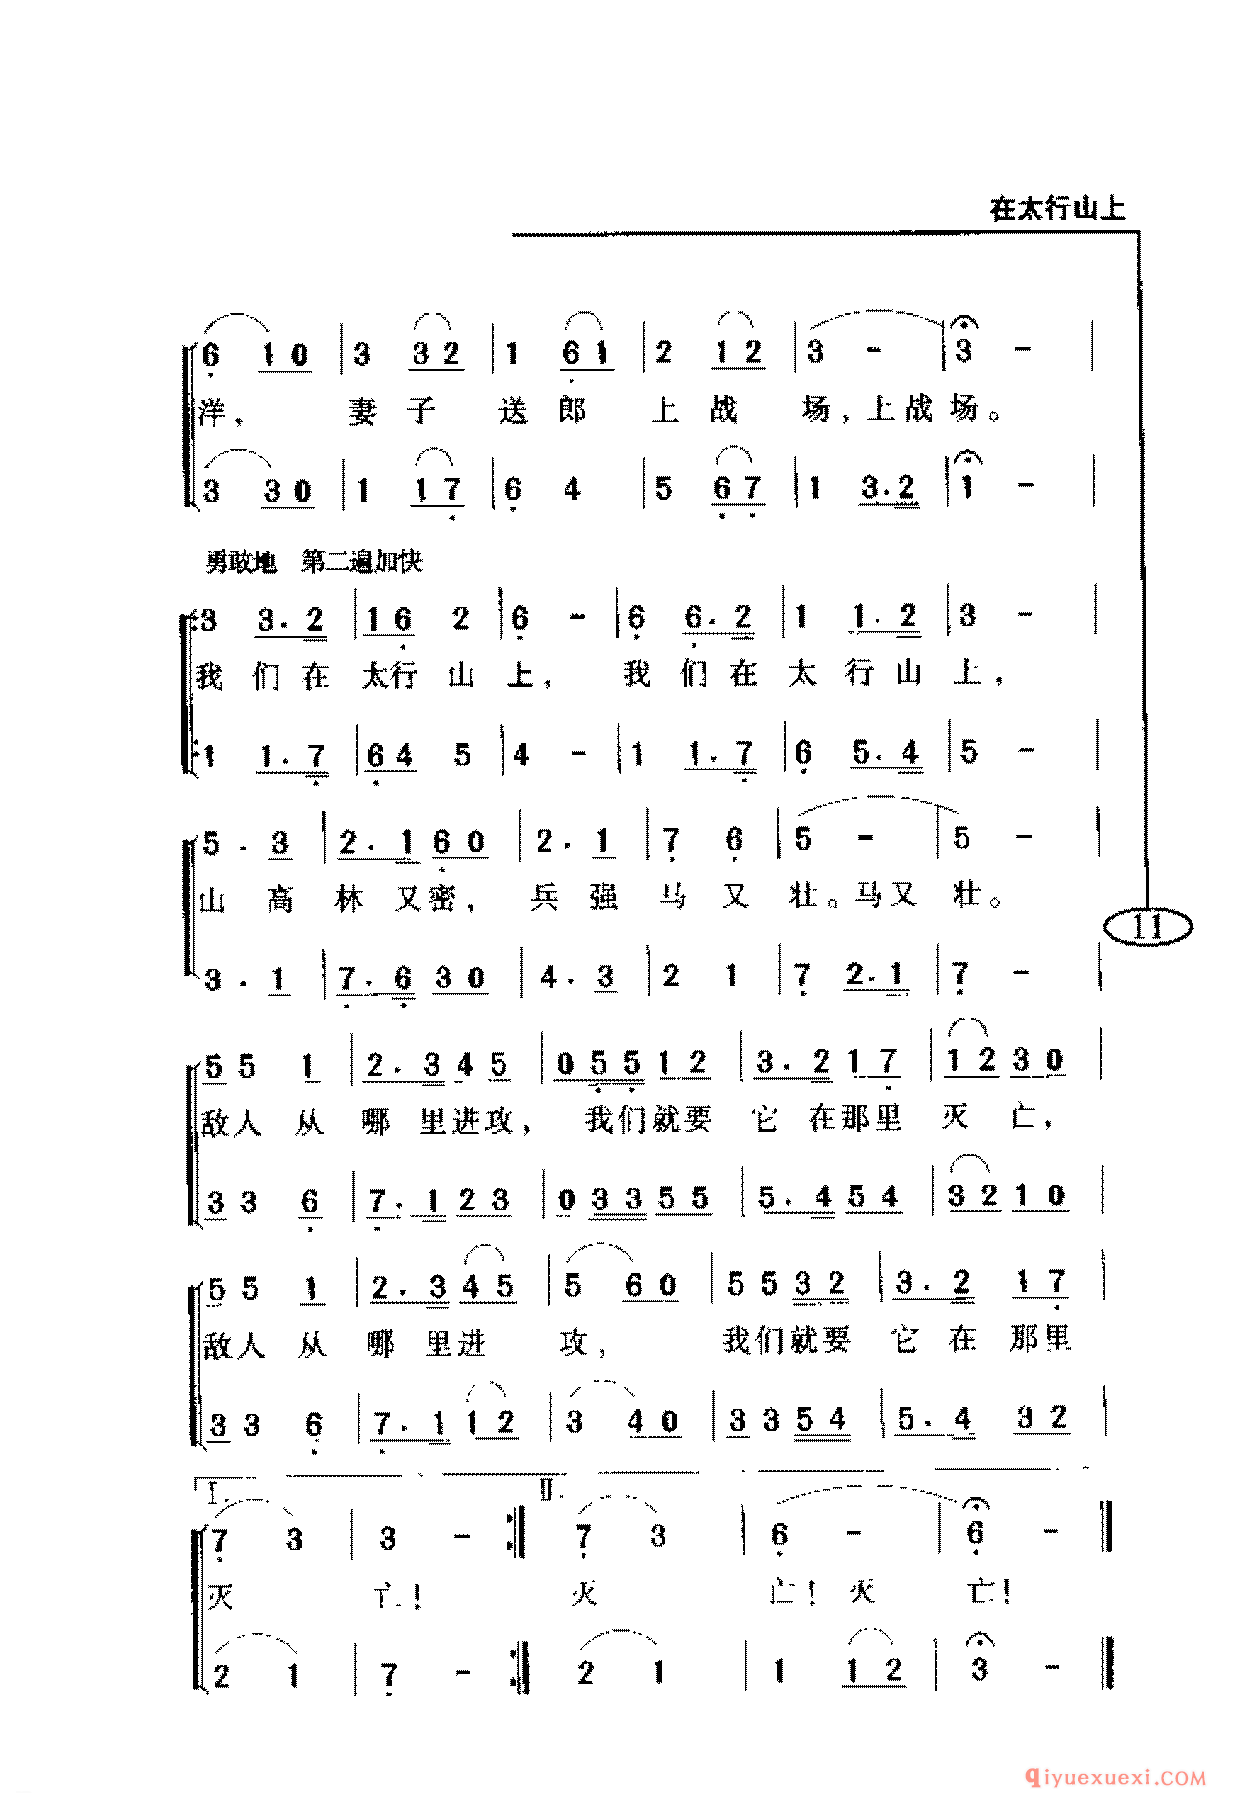 在太行山上
6 1 0 | 3 3 2 | 1 6 1 | 2 1 2 | 3 - | 3 - |
洋， 妻 子 送 郎 上 战 场，上 战 场。
3 3 0 | 1 1 7 | 6 4 | 5 6 7 | 1 3.2 | 1 - |
勇敢地 第二遍加快
3 3.2 | 1 6 2 | 6 - | 6 6.2 | 1 1.2 | 3 - |
我 们 在 太 行 山 上， 我 们 在 太 行 山 上，
1 1.7 | 6 4 5 | 4 - | 1 1.7 | 6 5.4 | 5 - |
5.3 | 2.1 6 0 | 2.1 | 7 6 | 5 - | 5 - |
山 高 林 又 密， 兵 强 马 又 壮。马 又 壮。
11
3.1 | 7.6 3 0 | 4.3 | 2 1 | 7 2.1 | 7 - |
5 5 1 | 2.3 4 5 | 0 5 5 1 2 | 3.2 1 7 | 1 2 3 0 |
敌 人 从 哪 里 进 攻， 我 们 就 要 它 在 那 里 灭 亡，
3 3 6 | 7.1 2 3 | 0 3 3 5 5 | 5.4 5 4 | 3 2 1 0 |
5 5 1 | 2.3 4 5 | 5 6 0 | 5 5 3 2 | 3.2 1 7 |
敌 人 从 哪 里 进 攻， 我 们 就 要 它 在 那 里
3 3 6 | 7.1 1 2 | 3 4 0 | 3 3 5 4 | 5.4 3 2 |
I. II.
7 3 | 3 - :| 7 3 | 6 - | 6 - ||
灭 亡！ 灭 亡！灭 亡！
2 1 | 7 - :| 2 1 | 1 1 2 | 3 - ||
qiyuexuexi.COM